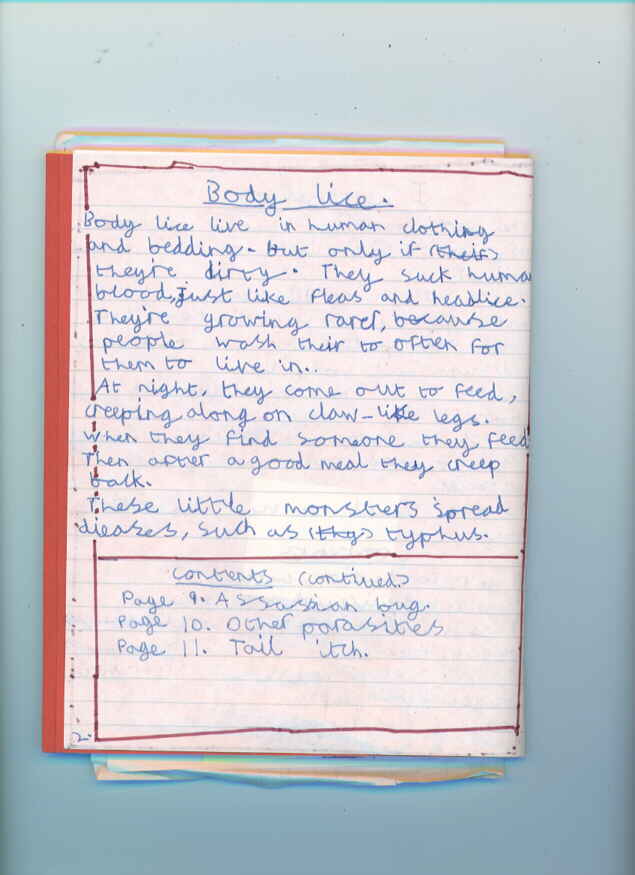 Body lice.
Body lice live in human clothing
and bedding. but only if (their)
they're dirty. They suck human
blood, just like fleas and headlice.
They're growing rarer, because
people wash their to often for
them to live in..
At night, they come out to feed,
creeping along on claw-like legs.
when they find someone they feed
Then after a good meal they creep
back.
These little monsters spread
dieases, such as (thy) typhus.
contents (contiued)
Page 9. Assassian bug.
Page 10. Other parasities
Page 11. Tail itch.
2.